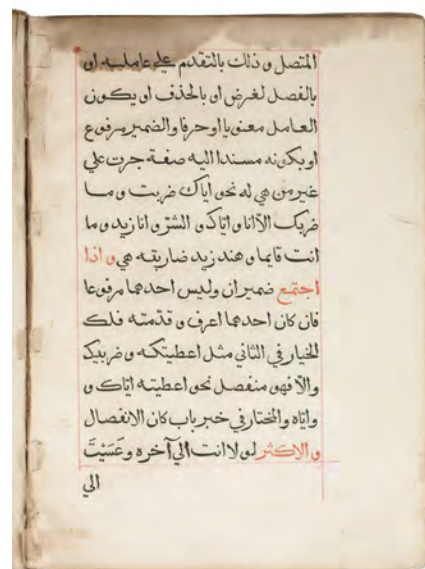 المتصل و ذلك بالتقدم علي عامليه او
بالفصل لغرض او بالحذف او يكون
العامل معنويا او حرفا والضمير مرفوع
او بكونه مسندا اليه صفة جرت علي
غير من هي له نحو اياك ضربت و ما
ضربك الا انا و اياك و الشر و انا زيد و ما
انت قايما و هند زيد ضاربته هي و اذا
اجتمع ضميران وليس احدهما مرفوعا
فان كان احدهما اعرف و قدمته فلك
الخيار في الثاني مثل اعطيتكه و ضربيك
والا فهو منفصل نحو اعطيته اياك و
واياه والمختار في خبر باب كان الانفصال
و الاكثر لو لا انت الي آخره وعَسَيْتَ
الي